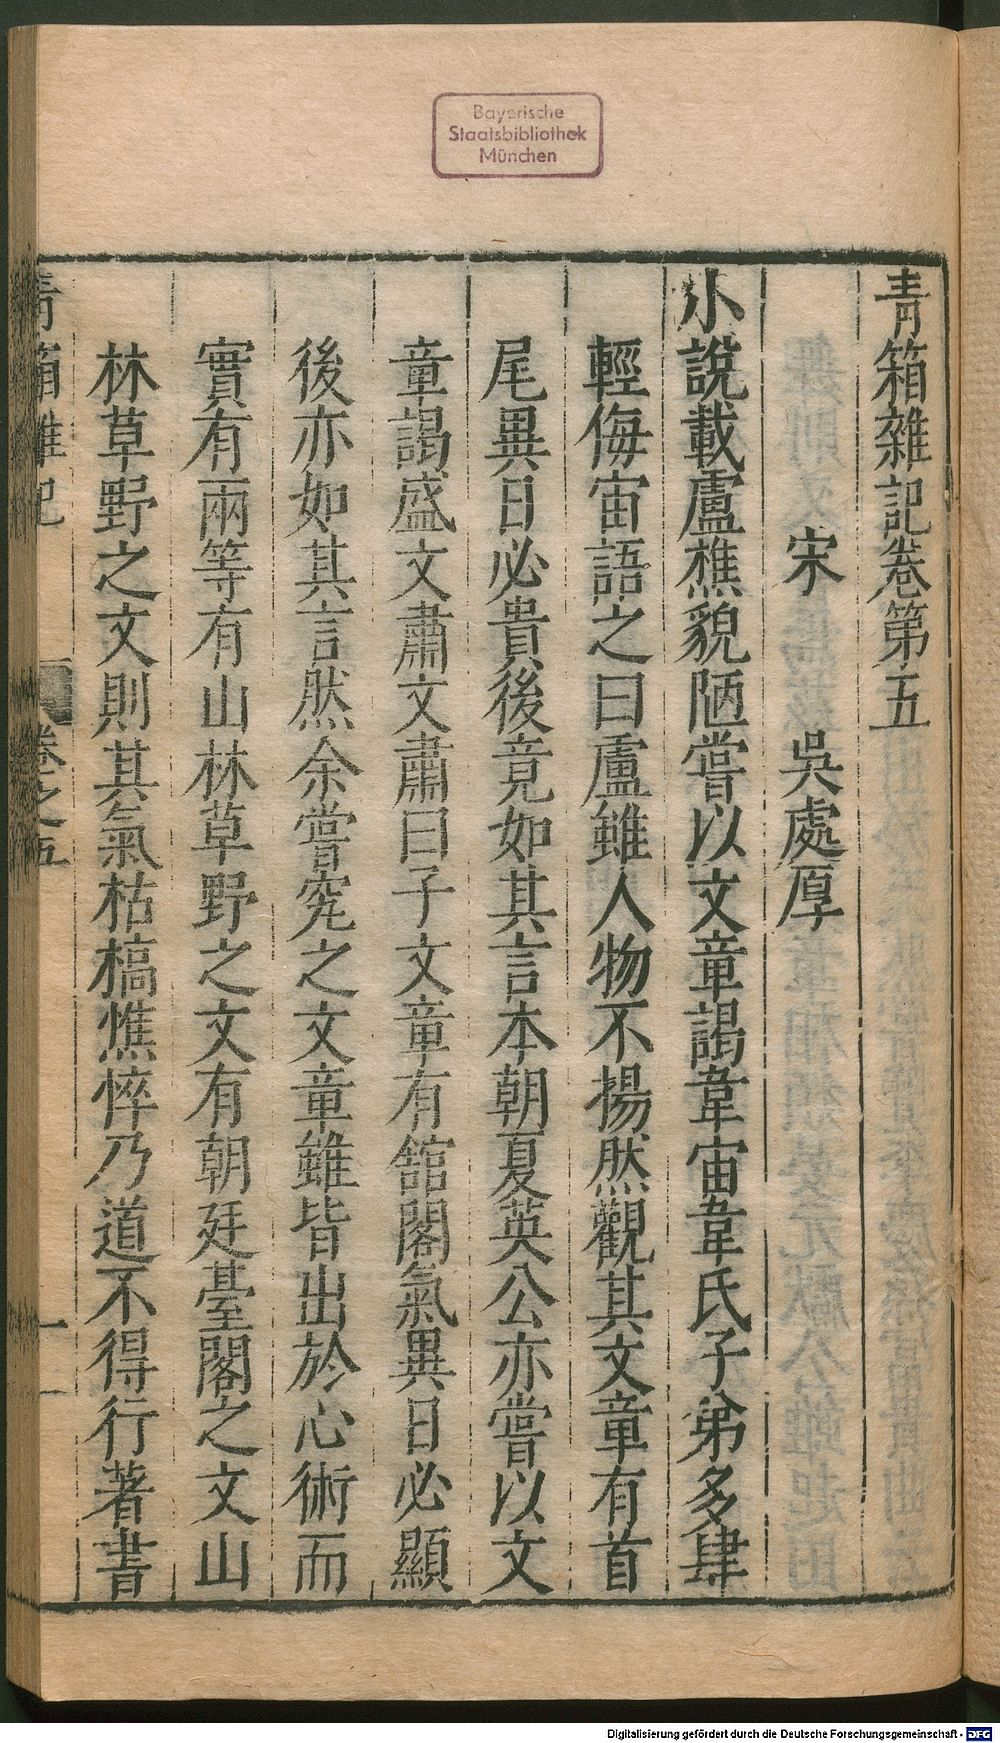 Bayerische
Staatsbibliothek
München
青箱雜記卷第五
宋 吳處厚
小說載盧樵貌陋嘗以文章謁韋宙韋氏子弟多肆
輕侮宙語之曰盧雖人物不揚然觀其文章有首
尾異日必貴後竟如其言本朝夏英公亦嘗以文
章謁盛文肅文肅曰子文章有舘閣氣異日必顯
後亦如其言然余嘗究之文章雖皆出於心術而
實有兩等有山林草野之文有朝廷臺閣之文山
林草野之文則其氣枯槁憔悴乃道不得行著書
青箱雜記 卷之五 一
Digitalisierung gefördert durch die Deutsche Forschungsgemeinschaft - DFG